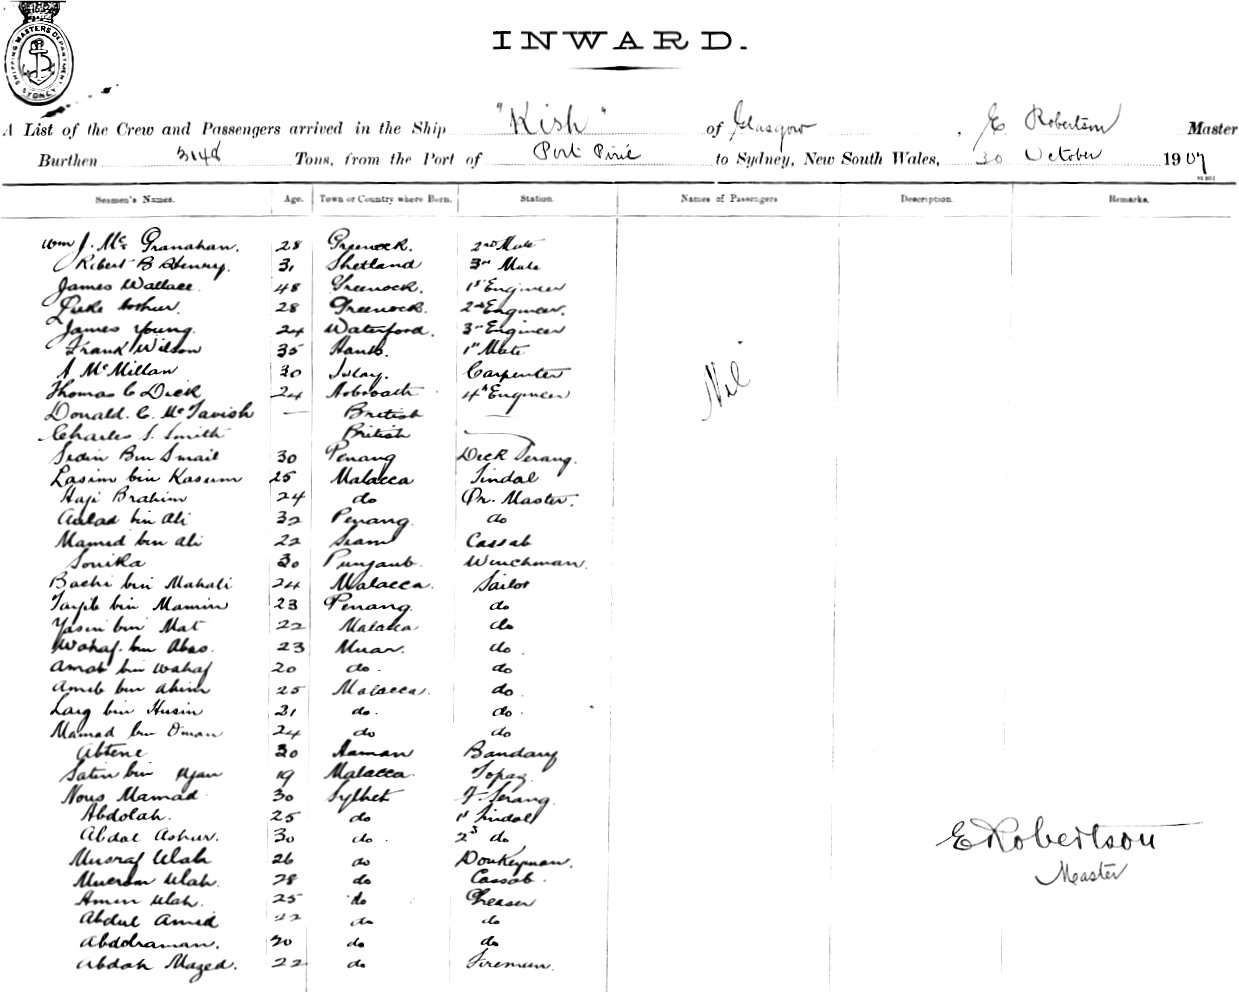 SHIPPING MASTERS DEPARTMENT SYDNEY
INWARD.
A List of the Crew and Passengers arrived in the Ship "Kish" of Glasgow, E Robertson Master
Burthen 3148 Tons, from the Port of Port Pirie to Sydney, New South Wales, 30 October 1907
Seamen's Names. Age. Town or Country where Born. Station. Names of Passengers Description. Remarks.
Wm J. Mc Granahan. 28 Greenock. 2nd Mate
Robert B Henry. 31 Shetland 3rd Mate
James Wallace. 48 Greenock. 1st Engineer
Luke Arthur. 28 Greenock. 2nd Engineer.
James Young. 24 Waterford. 3rd Engineer
Frank Wilson 35 Hants. 1st Mate
A McMillan 30 Islay. Carpenter
Thomas C Dick 24 Arbroath 4th Engineer
Donald. C. McTavish — British —
Charles S. Smith British
Nil
Sidin Bin Smail 30 Penang Deck Serang.
Lasim bin Kassim 25 Malacca Tindal
Haji Brahim 24 do Qr. Master.
Aulad bin Ali 32 Penang. do
Mamid bin Ali 22 Siam Cassab
Sonika 30 Punjaub. Winchman.
Bachi bin Mahali 24 Malacca. Sailor
Tayib bin Mamin 23 Penang. do
Yasin bin Mat 22 Malacca do
Wahaf. bin Abas. 23 Muar. do.
Amat bin Wahaf 20 do. do
Amib bin Ahim 25 Malacca. do.
Laig bin Husin 21 do. do.
Mamad bin Oman 24 do do
Abtene 30 Bandary
Satin bin 19 Malacca. Topaz.
Nous Mamad 30 Sylhet F. Serang.
Abdolah. 25 do 1st Tindal
Abdal Ashur. 30 do. 2d do
Musraf Ulah 26 do Donkeyman.
Mucram Ulah. 28 do Cassab.
Amin Ulah. 25 do Greaser
Abdul Amid 22 do do
Abdolraman. 30 do do
Abdah Mazed. 22 do Firemen.
E Robertson
Master